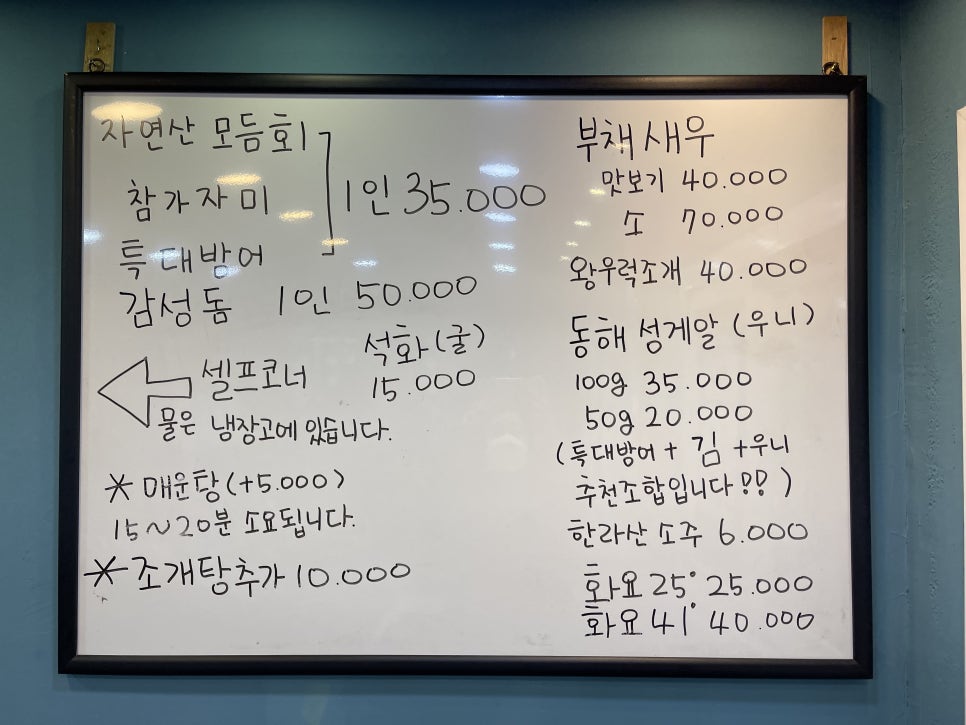 자연산 모듬회
참가자미
특대방어
1인 35.000
감성돔 1인 50.000
석화(굴)
15.000
셀프코너
물은 냉장고에 있습니다.
* 매운탕(+5.000)
15~20분 소요됩니다.
* 조개탕추가 10.000
부채새우
맛보기 40.000
소 70.000
왕우럭조개 40.000
동해 성게알 (우니)
100g 35.000
50g 20.000
(특대방어 + 김 +우니
추천조합입니다!! )
한라산 소주 6.000
화요 25° 25.000
화요 41° 40.000